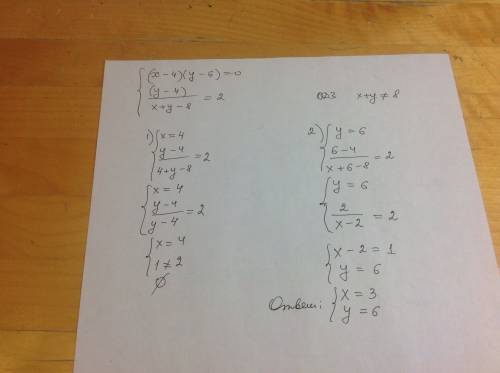 { (x-4)(y-6)=0
(y-4)/(x+y-8) = 2
ОДЗ x+y≠8
1) { x=4
(y-4)/(4+y-8) = 2
{ x=4
(y-4)/(y-4) = 2
{ x=4
1≠2
∅
2) { y=6
(6-4)/(x+6-8) = 2
{ y=6
2/(x-2) = 2
{ x-2=1
y=6
Ответ: { x=3
y=6